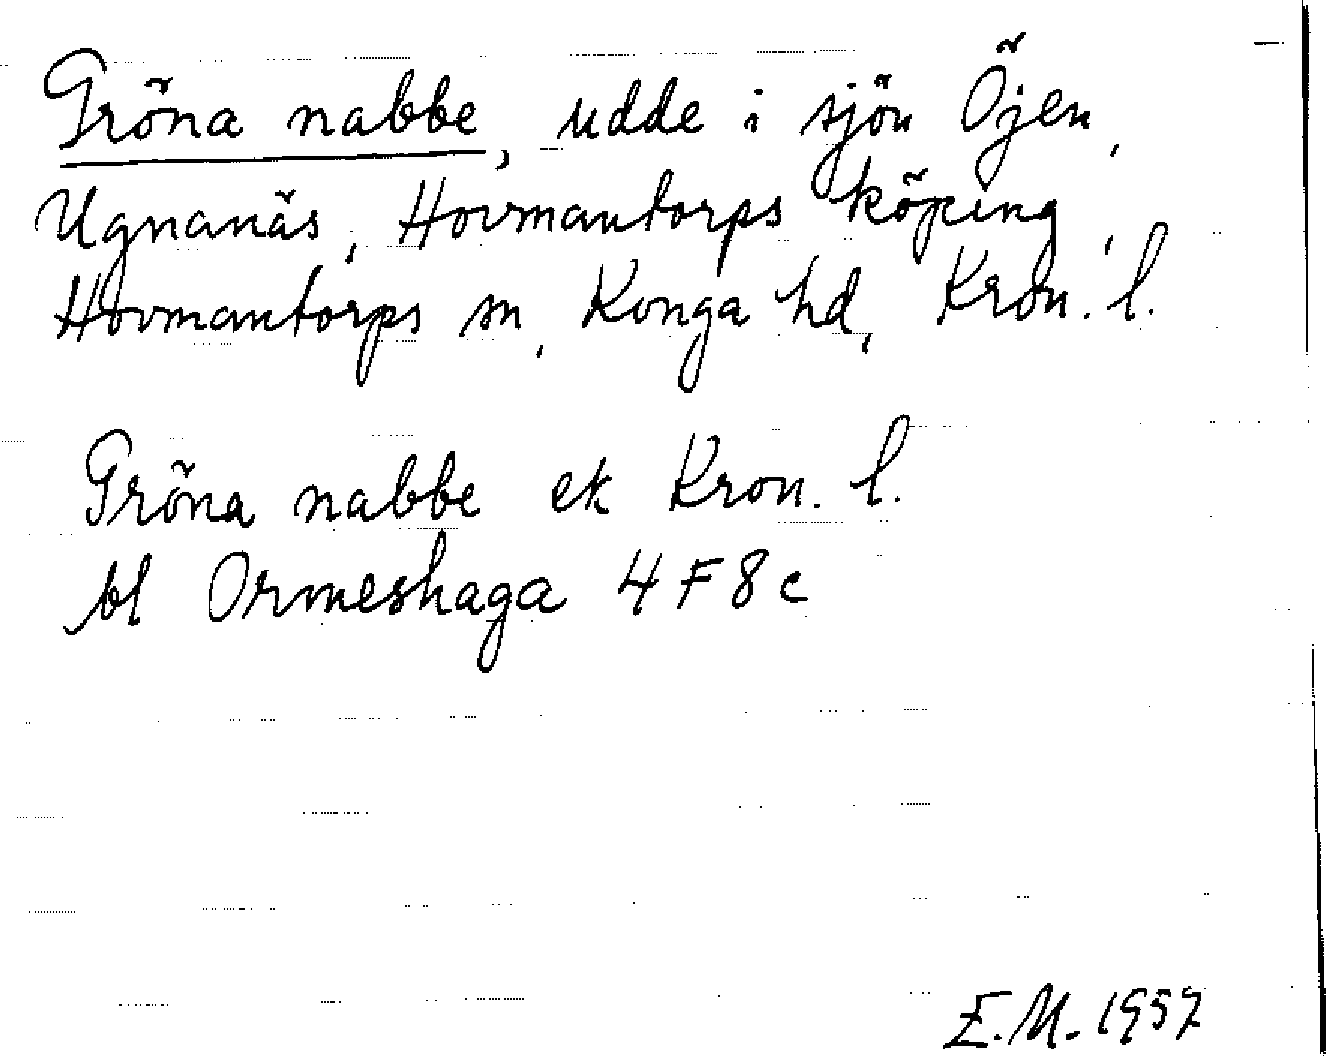 Gröna nabbe, udde i sjön Öjen,
Ugnanäs, Hovmantorps köping,
Hovmantorps sn, Konga hd, Kron. l.
Gröna nabbe ek Kron. l.
bl Ormeshaga 4F8c
E.M. 1957